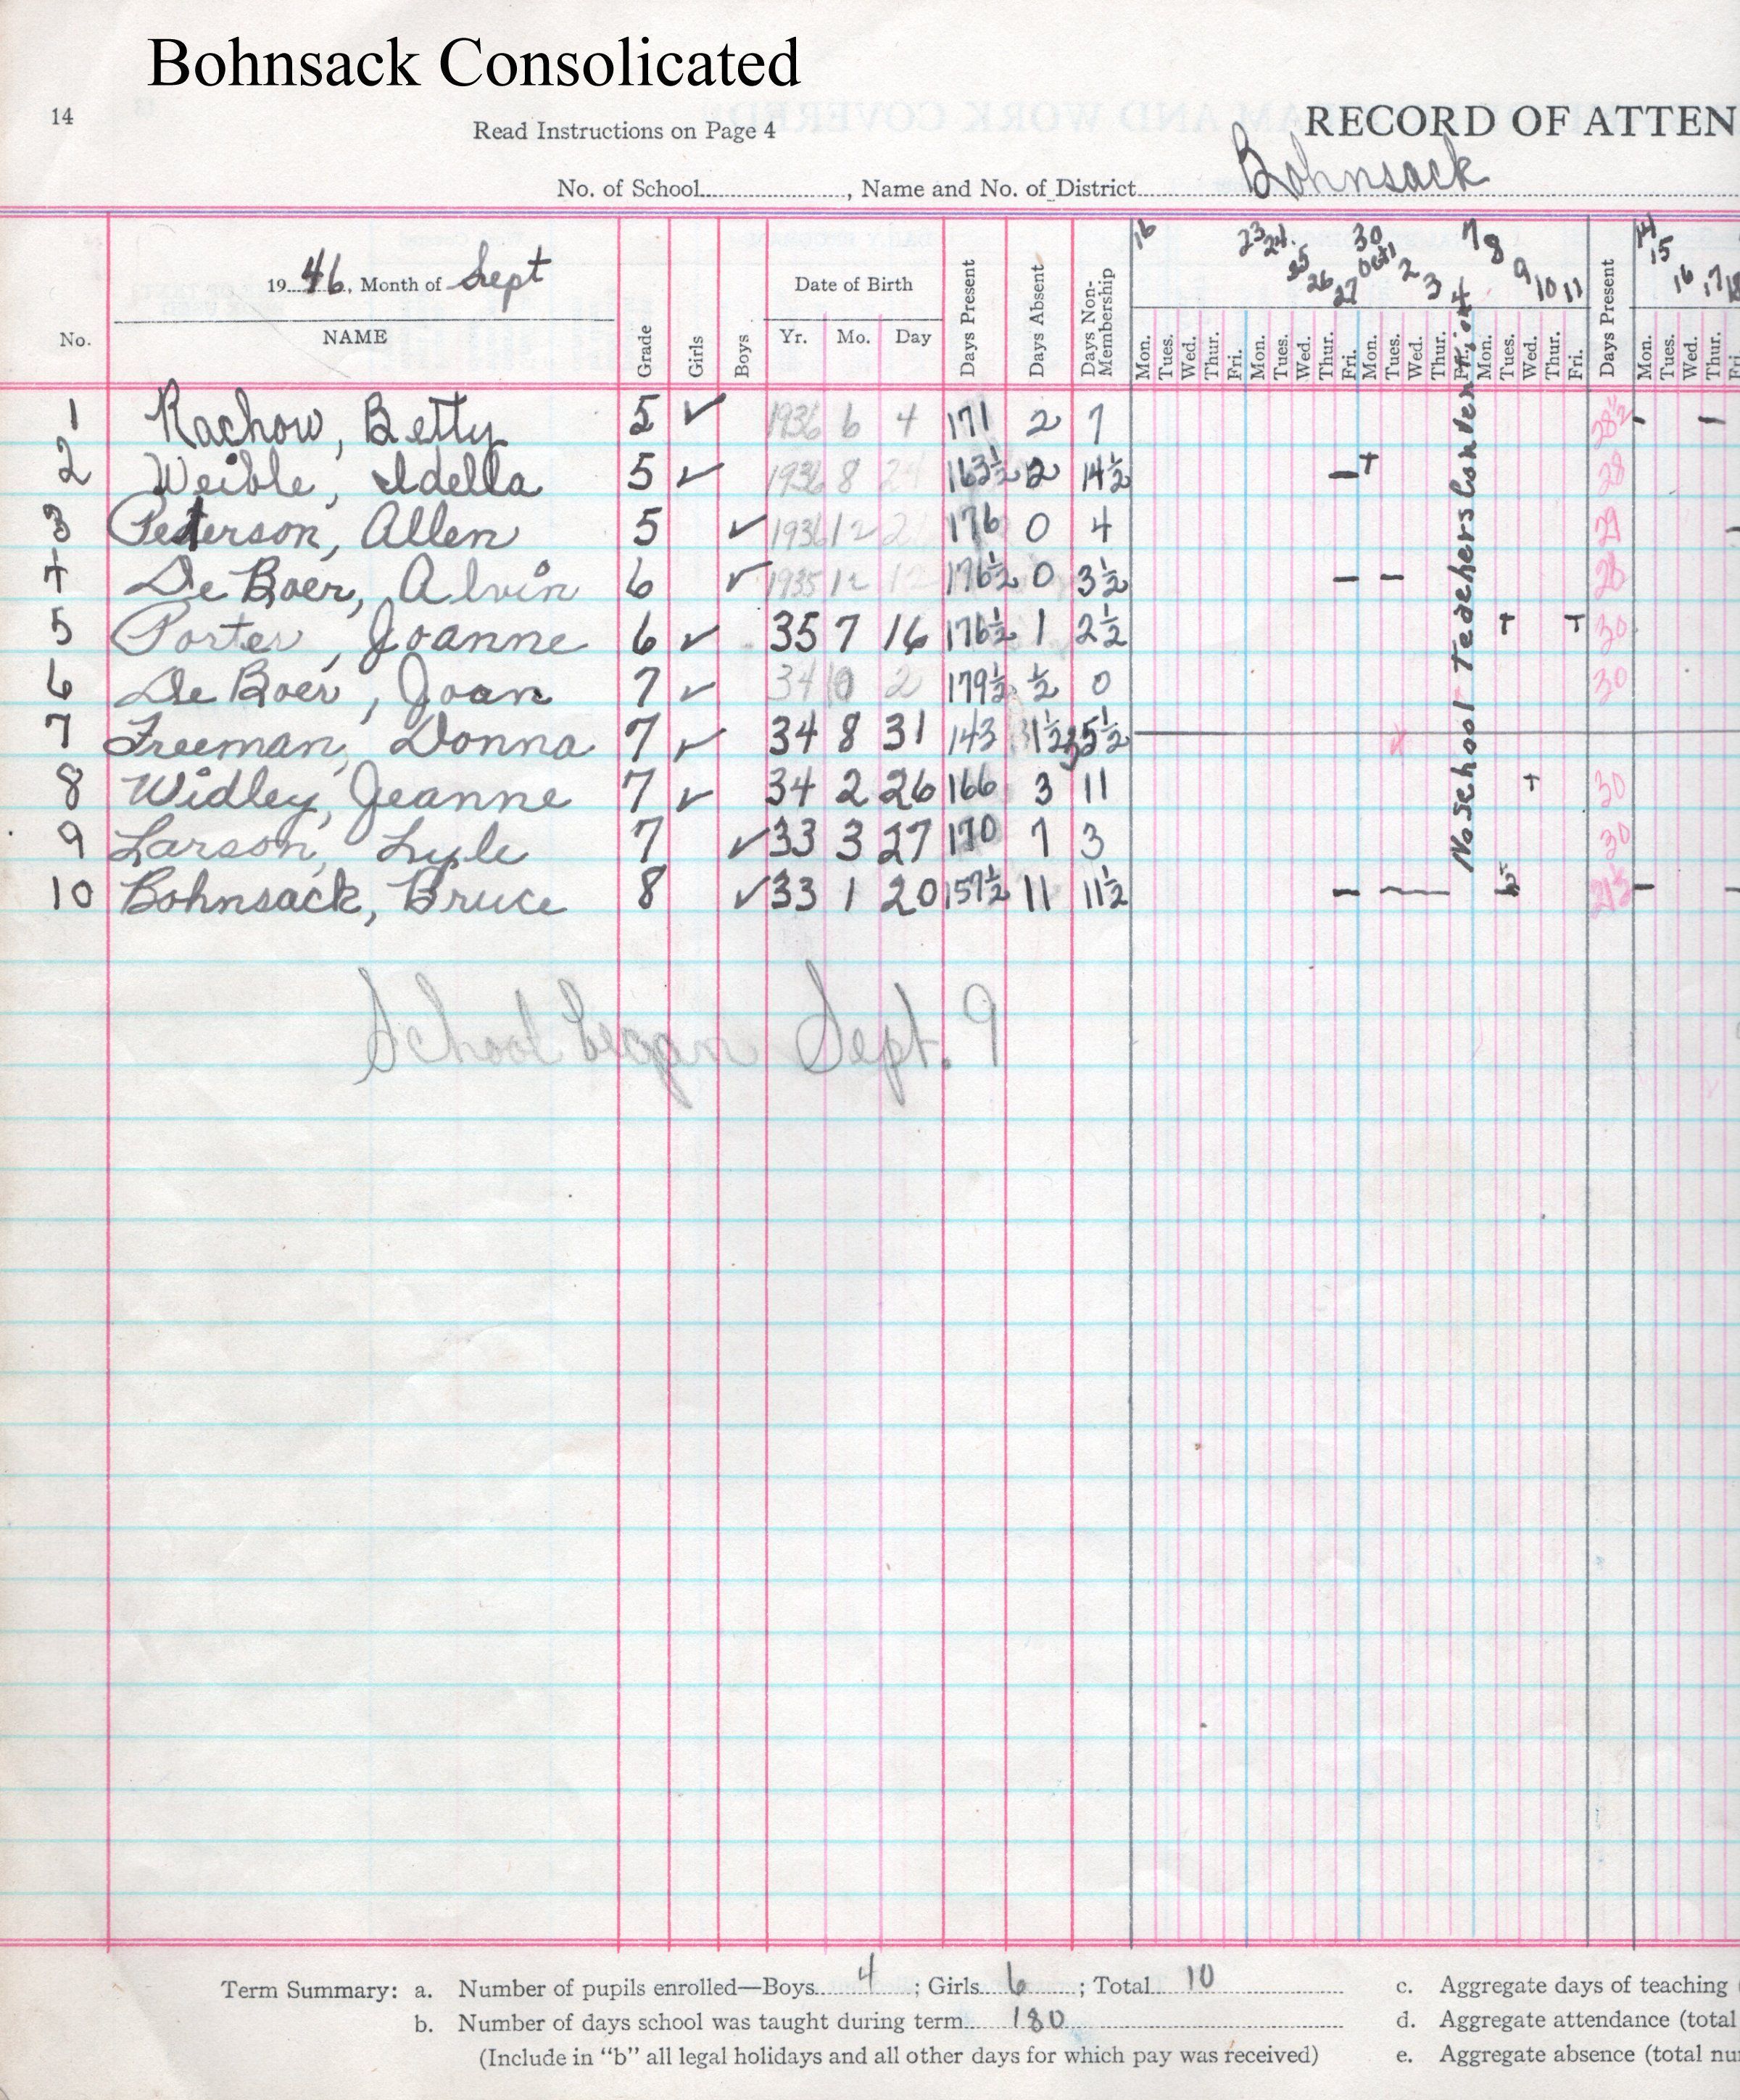 Bohnsack Consolicated
14
Read Instructions on Page 4
RECORD OF ATTEN
No. of School, Name and No. of District Bohnsack
1946, Month of Sept
No. NAME Grade Girls Boys Date of Birth Yr. Mo. Day Days Present Days Absent Days Non-Membership Mon. Tues. Wed. Thur. Fri. Mon. Tues. Wed. Thur. Fri. Mon. Tues. Wed. Thur. Fri. Mon. Tues. Wed. Thur. Fri. Days Present Mon. Tues. Wed. Thur. Fri
16 23 24 25 26 27 30 Oct 1 2 3 4 7 8 9 10 11 14 15 16 17 18
No school Teachers Convention
1 Rachow, Betty 5 ✓ 1936 6 4 171 2 7 28½ - -
2 Weible, Idella 5 ✓ 1936 8 24 163½ 2 14½ - + 28
3 Peterson, Allen 5 ✓ 1936 12 176 0 4 29 -
4 De Boer, Alvin 6 ✓ 1935 12 12 176½ 0 3½ - - 28
5 Porter, Joanne 6 ✓ 35 7 16 176½ 1 2½ + + 30
6 De Boer, Joan 7 ✓ 34 10 2 179½ ½ 0 30
7 Freeman, Donna 7 ✓ 34 8 31 143 1½ 35½
8 Widley, Jeanne 7 ✓ 34 2 26 166 3 11 + 30
9 Larson, Lyle 7 ✓ 33 3 27 170 7 3 30
10 Bohnsack, Bruce 8 ✓ 33 1 20 157½ 11 11½ - - - 21½ - -
School began Sept. 9
Term Summary: a. Number of pupils enrolled—Boys 4; Girls 6; Total 10 c. Aggregate days of teaching (
b. Number of days school was taught during term 180 d. Aggregate attendance (total
(Include in “b” all legal holidays and all other days for which pay was received) e. Aggregate absence (total nu